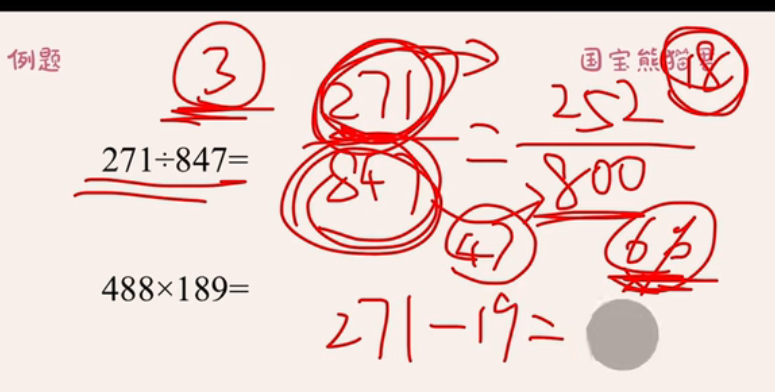 例题
3
国宝熊猫
18
271÷847=
271
847
=
252
800
47
6%
488×189=
271-19=